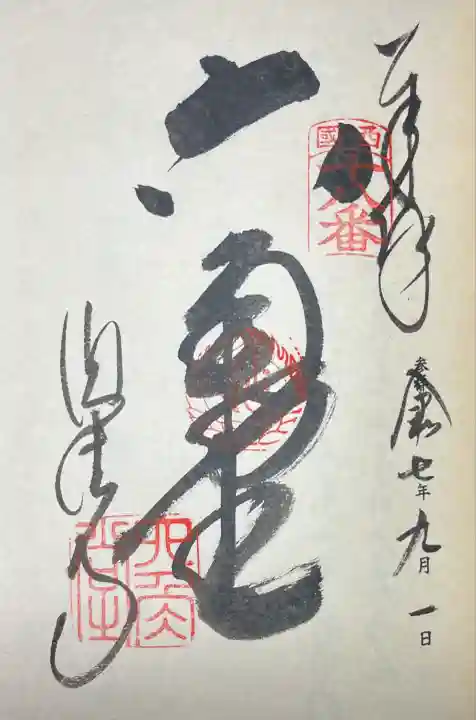 奉拝
西國
十八番
六角堂
頂法寺
令和七年九月一日